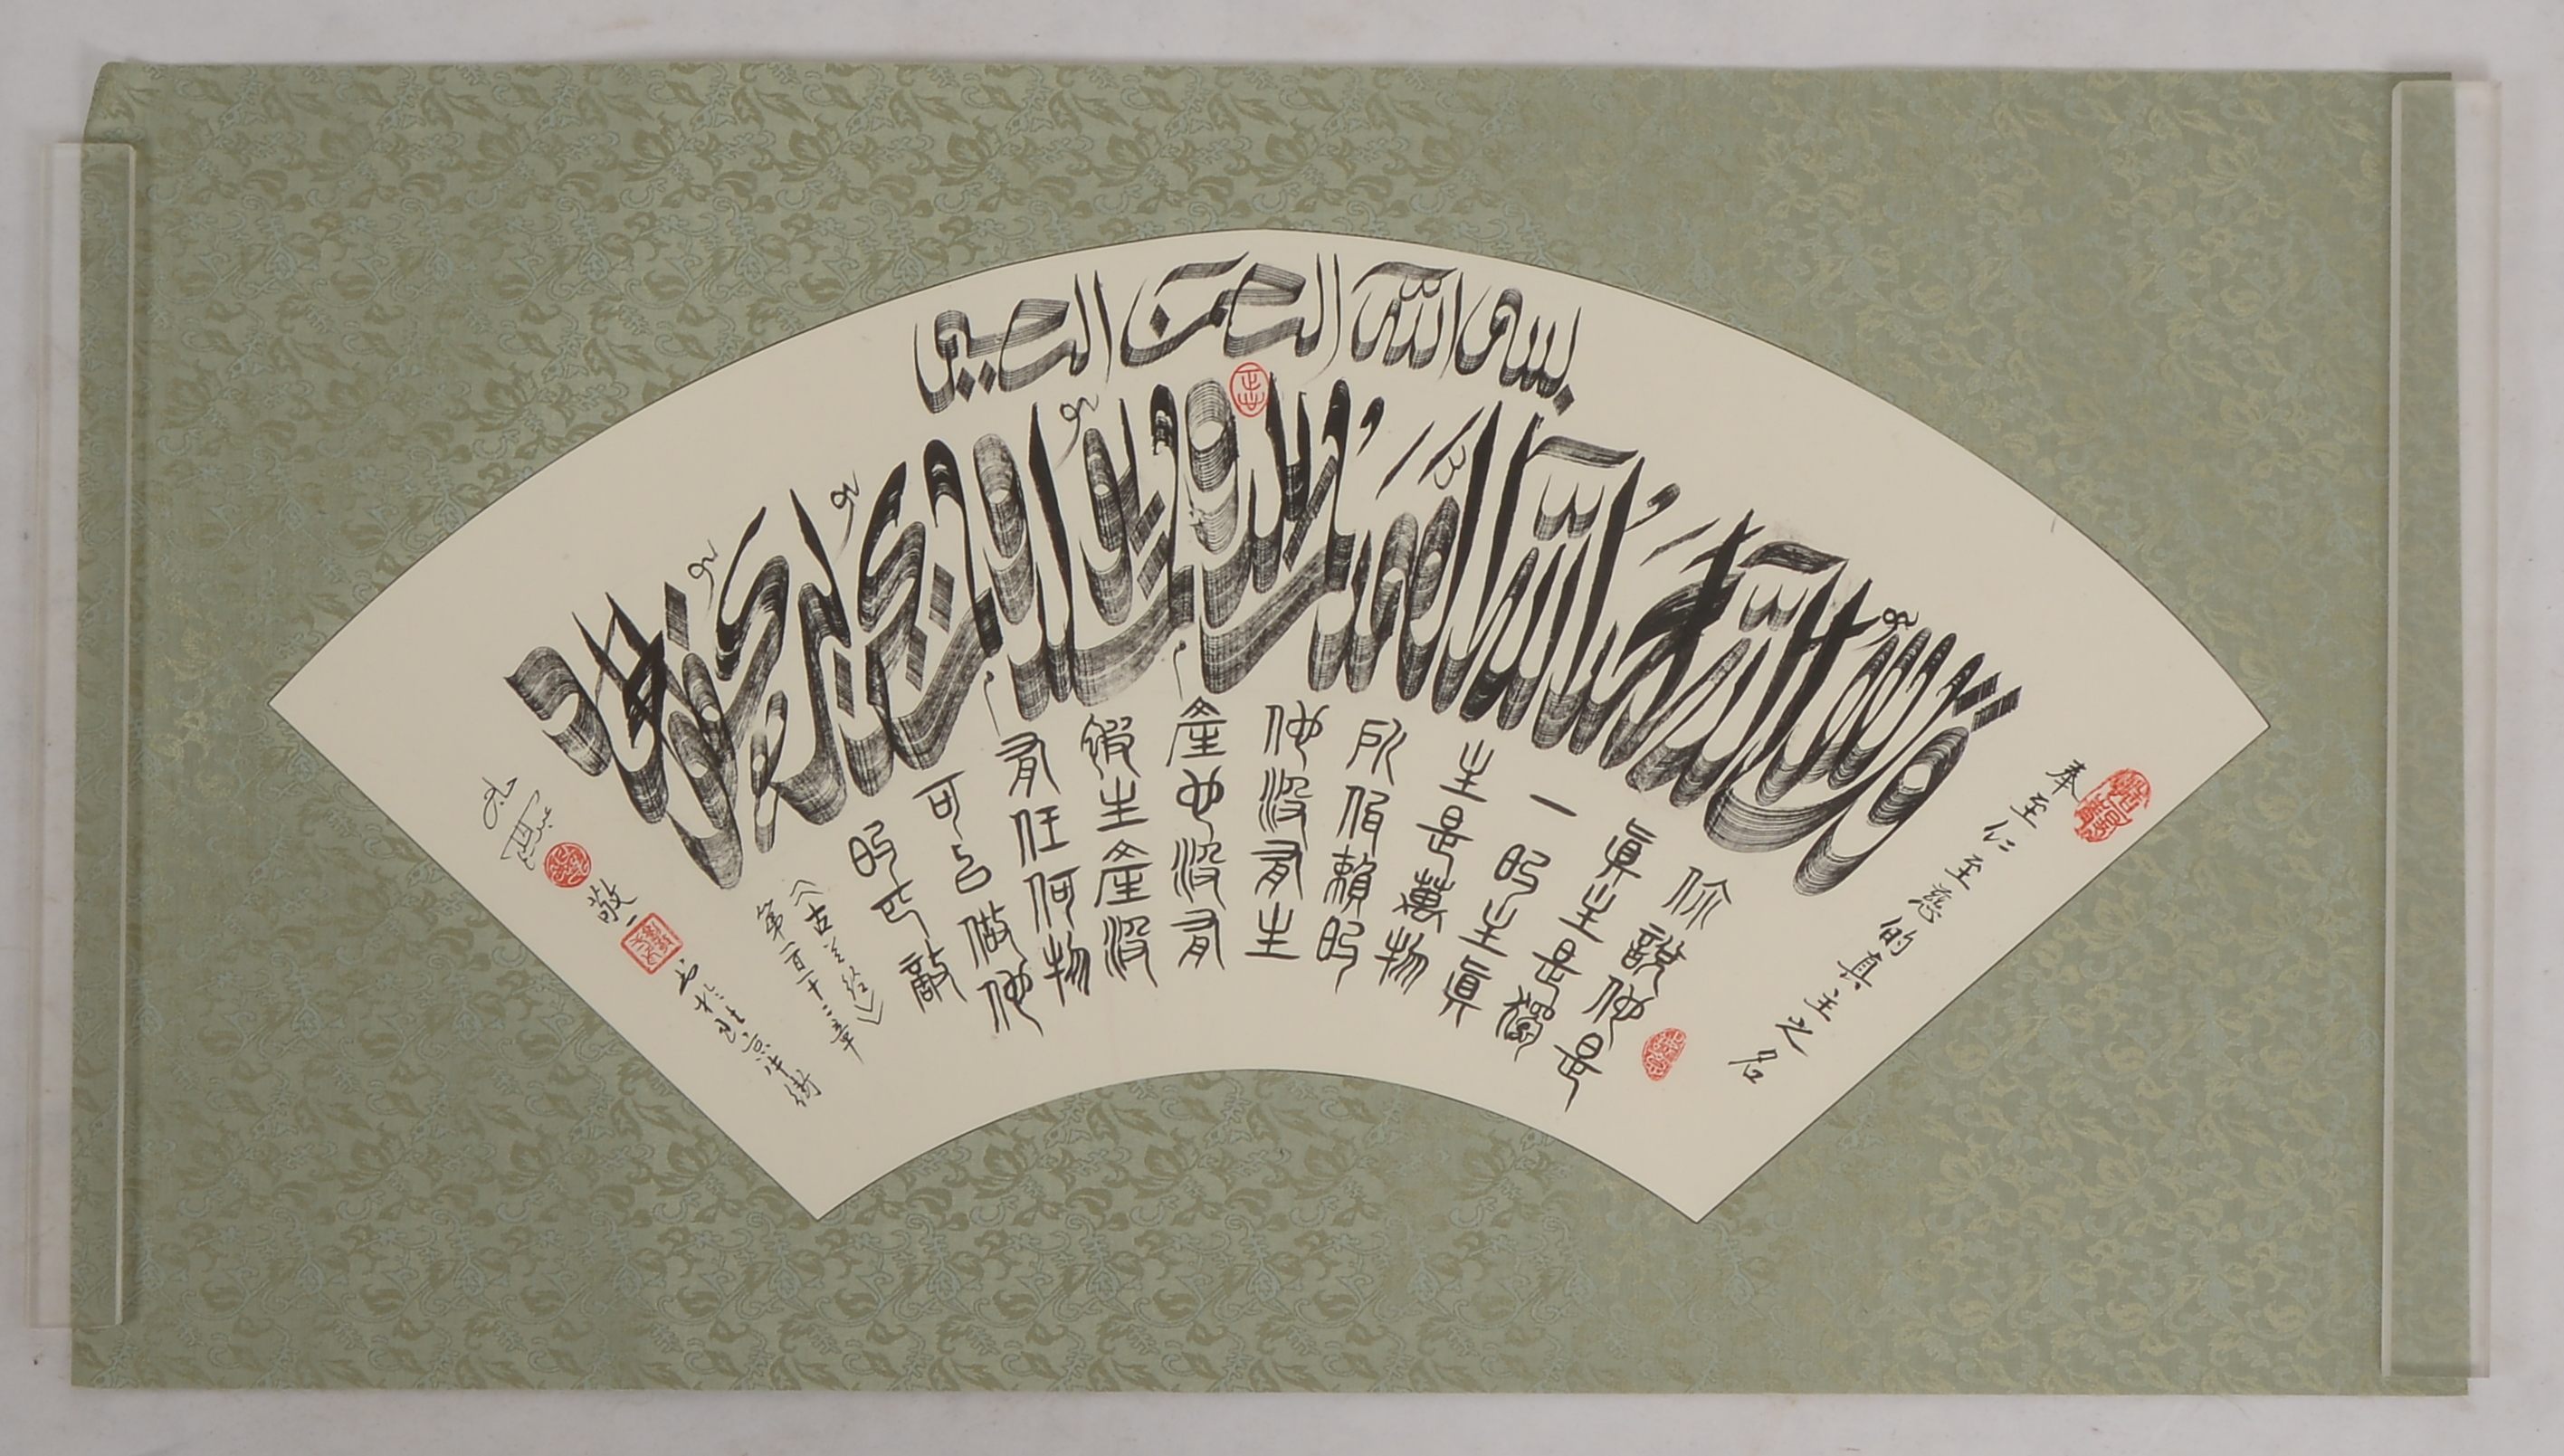 بسم الله الرحمن الرحيم
قل هو الله أحد الله الصمد لم يلد ولم يولد ولم يكن له كفوا أحد
奉至仁至慈的真主之名
你說他是
眞主是獨
一的主眞
主是萬物
所倚賴的
他沒有生
產也沒有
被生產沒
有任何物
可以做他
的匹敵
《古兰经》
第一百一十二章
敬一
书於北京牛街